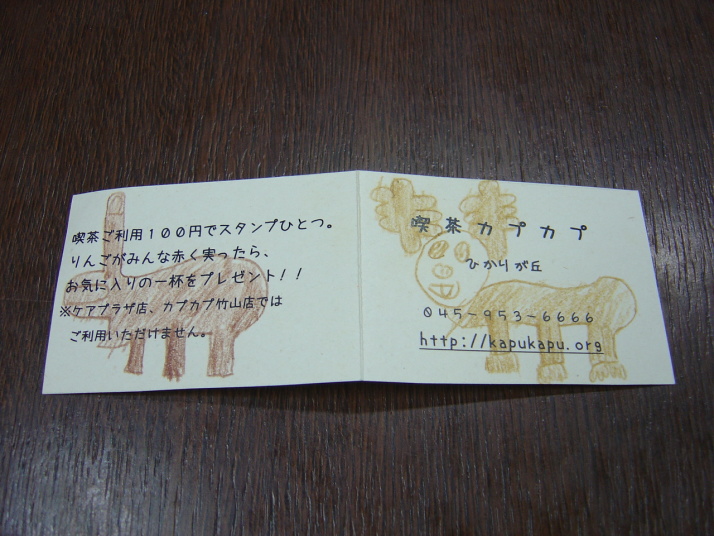 喫茶ご利用１００円でスタンプひとつ。
りんごがみんな赤く実ったら、
お気に入りの一杯をプレゼント！！
※ケアプラザ店、カプカプ竹山店では
ご利用いただけません。
喫茶カプカプ
ひかりが丘
０４５－９５３－６６６６
http://kapukapu.org